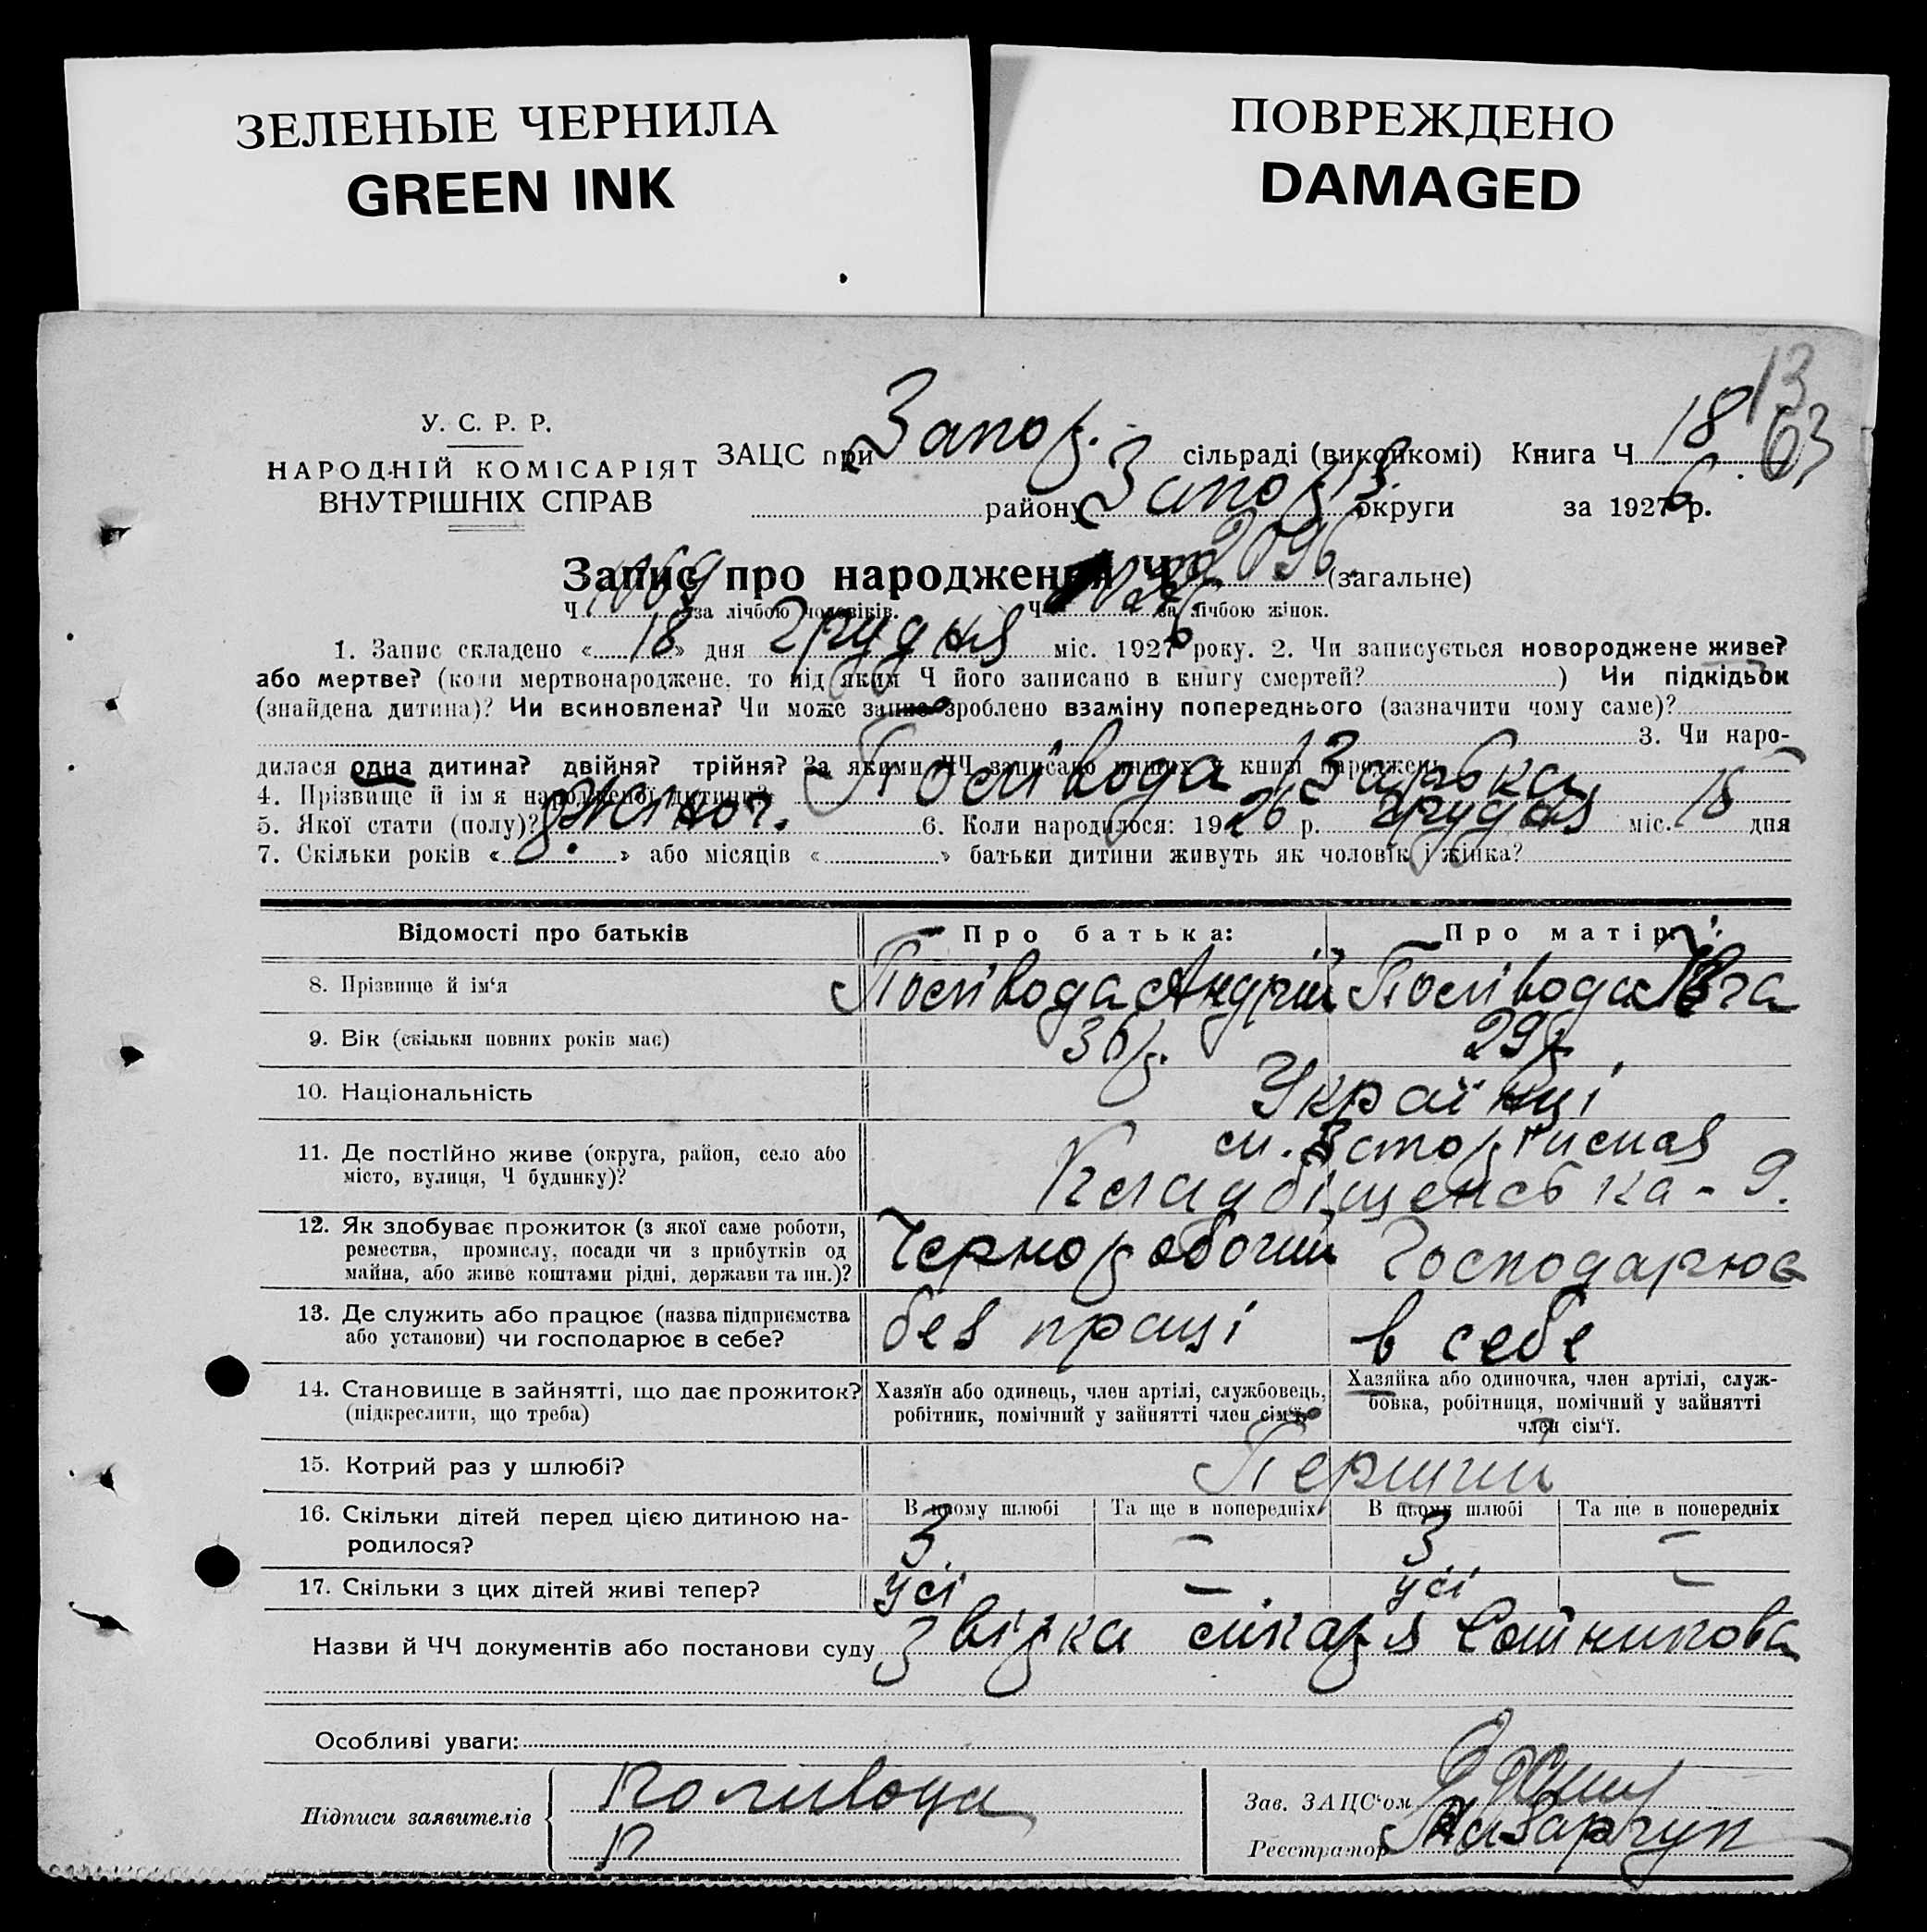 ЗЕЛЕНЫЕ ЧЕРНИЛА
GREEN INK
ПОВРЕЖДЕНО
DAMAGED
13
63
У. С. Р. Р.
НАРОДНІЙ КОМІСАРІЯТ
ВНУТРІШНІХ СПРАВ
ЗАЦС при Запор. сільраді (виконкомі) Книга Ч 18
району Запоріз. округи за 1926 р.
Запис про народження Ч 2096 (загальне)
Ч 1069 за лічбою чоловіків. Ч за лічбою жінок.
1. Запис складено « 18 » дня Грудня міс. 1926 року. 2. Чи записується новороджене живе?
або мертве? (коли мертвонароджене, то під яким Ч його записано в книгу смертей? ) Чи підкідьок
(знайдена дитина)? Чи всиновлена? Чи може запис зроблено взаміну попереднього (зазначити чому саме)?
3. Чи наро-
дилася одна дитина? двійня? трійня? За якими ЧЧ записано инших в книзі народжень
4. Прізвище й ім'я народженої дитини? Полівода
5. Якої стати (полу)? Жіноч. 6. Коли народилося: 1926 р. Грудня міс. 15 дня
7. Скільки років « 8 » або місяців « » батьки дитини живуть як чоловік і жінка?
Відомості про батьків
Про батька:
Про матір:
8. Прізвище й ім'я Полівода Андрій Полівода Ївга
9. Вік (скільки повних років має) 36 р. 29 р.
10. Національність Українці
11. Де постійно живе (округа, район, село або місто, вулиця, Ч будинку)?
м. Запоріжжя
Кладбіщенська - 9.
12. Як здобуває прожиток (з якої саме роботи, ремества, промислу, посади чи з прибутків од майна, або живе коштами рідні, держави та ин.)?
Чернoробочий Господарює
13. Де служить або працює (назва підприємства або установи) чи господарює в себе?
без праці в себе
14. Становище в зайнятті, що дає прожиток? (підкреслити, що треба)
Хазяїн або одинець, член артілі, службовець, робітник, помічний у зайнятті член сім'ї.
Хазяйка або одиночка, член артілі, служ-
бовка, робітниця, помічний у зайнятті
член сім'ї.
15. Котрий раз у шлюбі? Перший
16. Скільки дітей перед цією дитиною на-
родилося?
В цьому шлюбі Та ще в попередніх В цьому шлюбі Та ще в попередніх
3 – 3 –
17. Скільки з цих дітей живі тепер? усі – усі –
Назви й ЧЧ документів або постанови суду звізка лікаря Сотникова
Особливі уваги:
Підписи заявителів Поливода
П
Зав. ЗАЦС'ом
Реєстратор